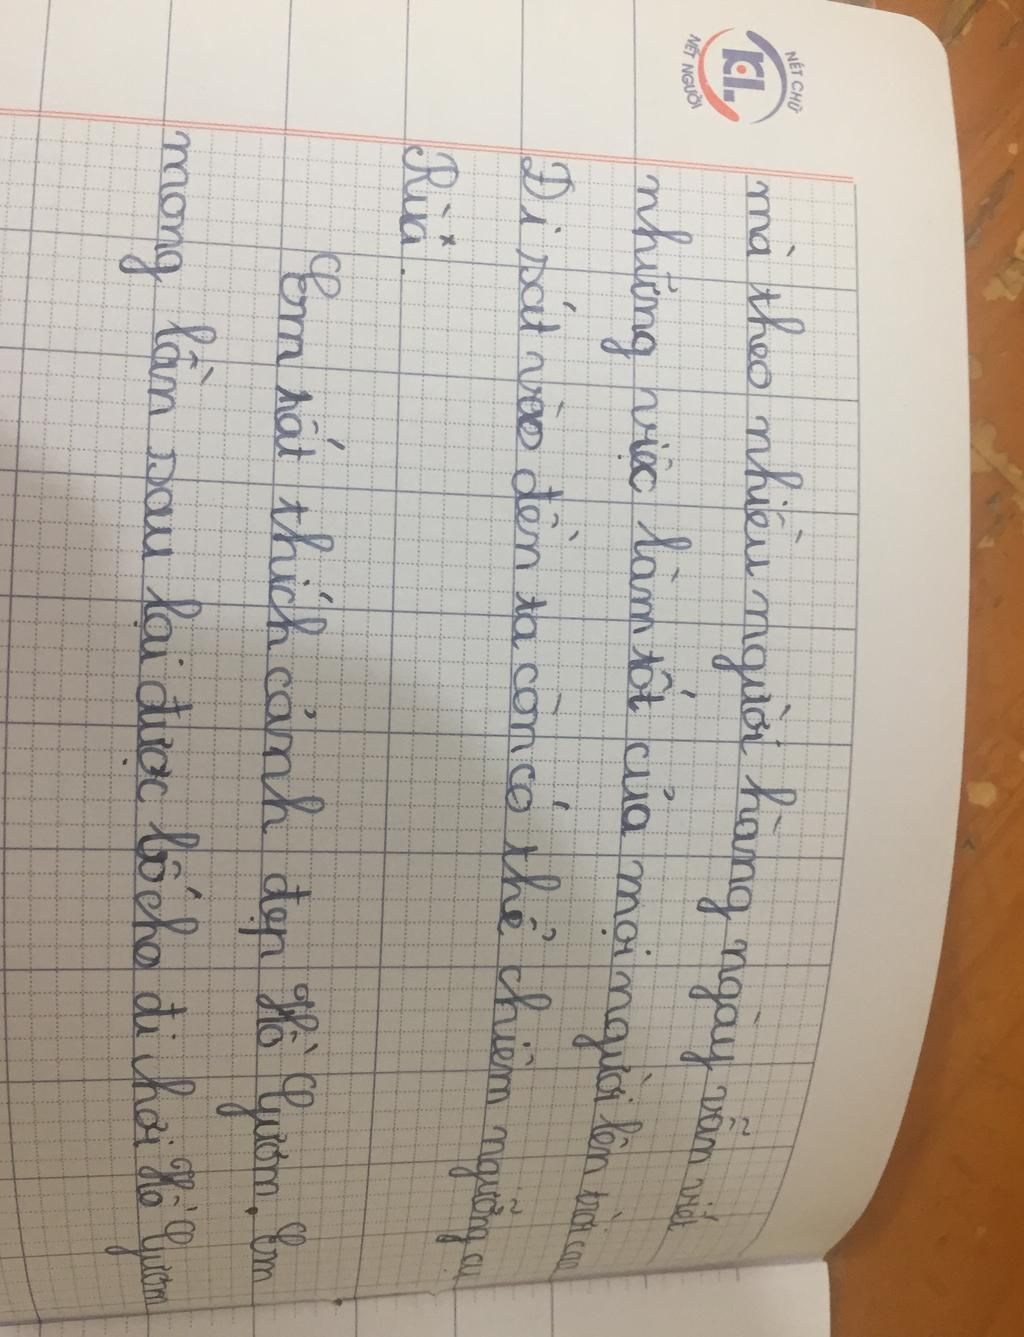 NÉT CHỮ
KL.
NẾT NGƯỜI
mà theo nhiều người hàng ngày vẫn viết
những việc làm tốt của mọi người lên trời cao
Đi sát vào đền ta còn có thể chiêm ngưỡng cụ
Rùa.
Em rất thích cảnh đẹp Hồ Gươm. Em
mong lần sau lại được bố cho đi chơi Hồ Gươm